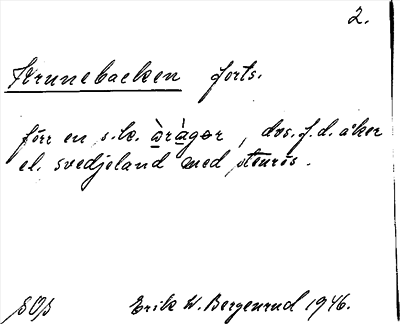 2.
Krunebacken forts.
förr en s.k. àràgər, dvs. f.d. åker
el. svedjeland med stenrös.
SOs Erik W. Bergenrud 1946.